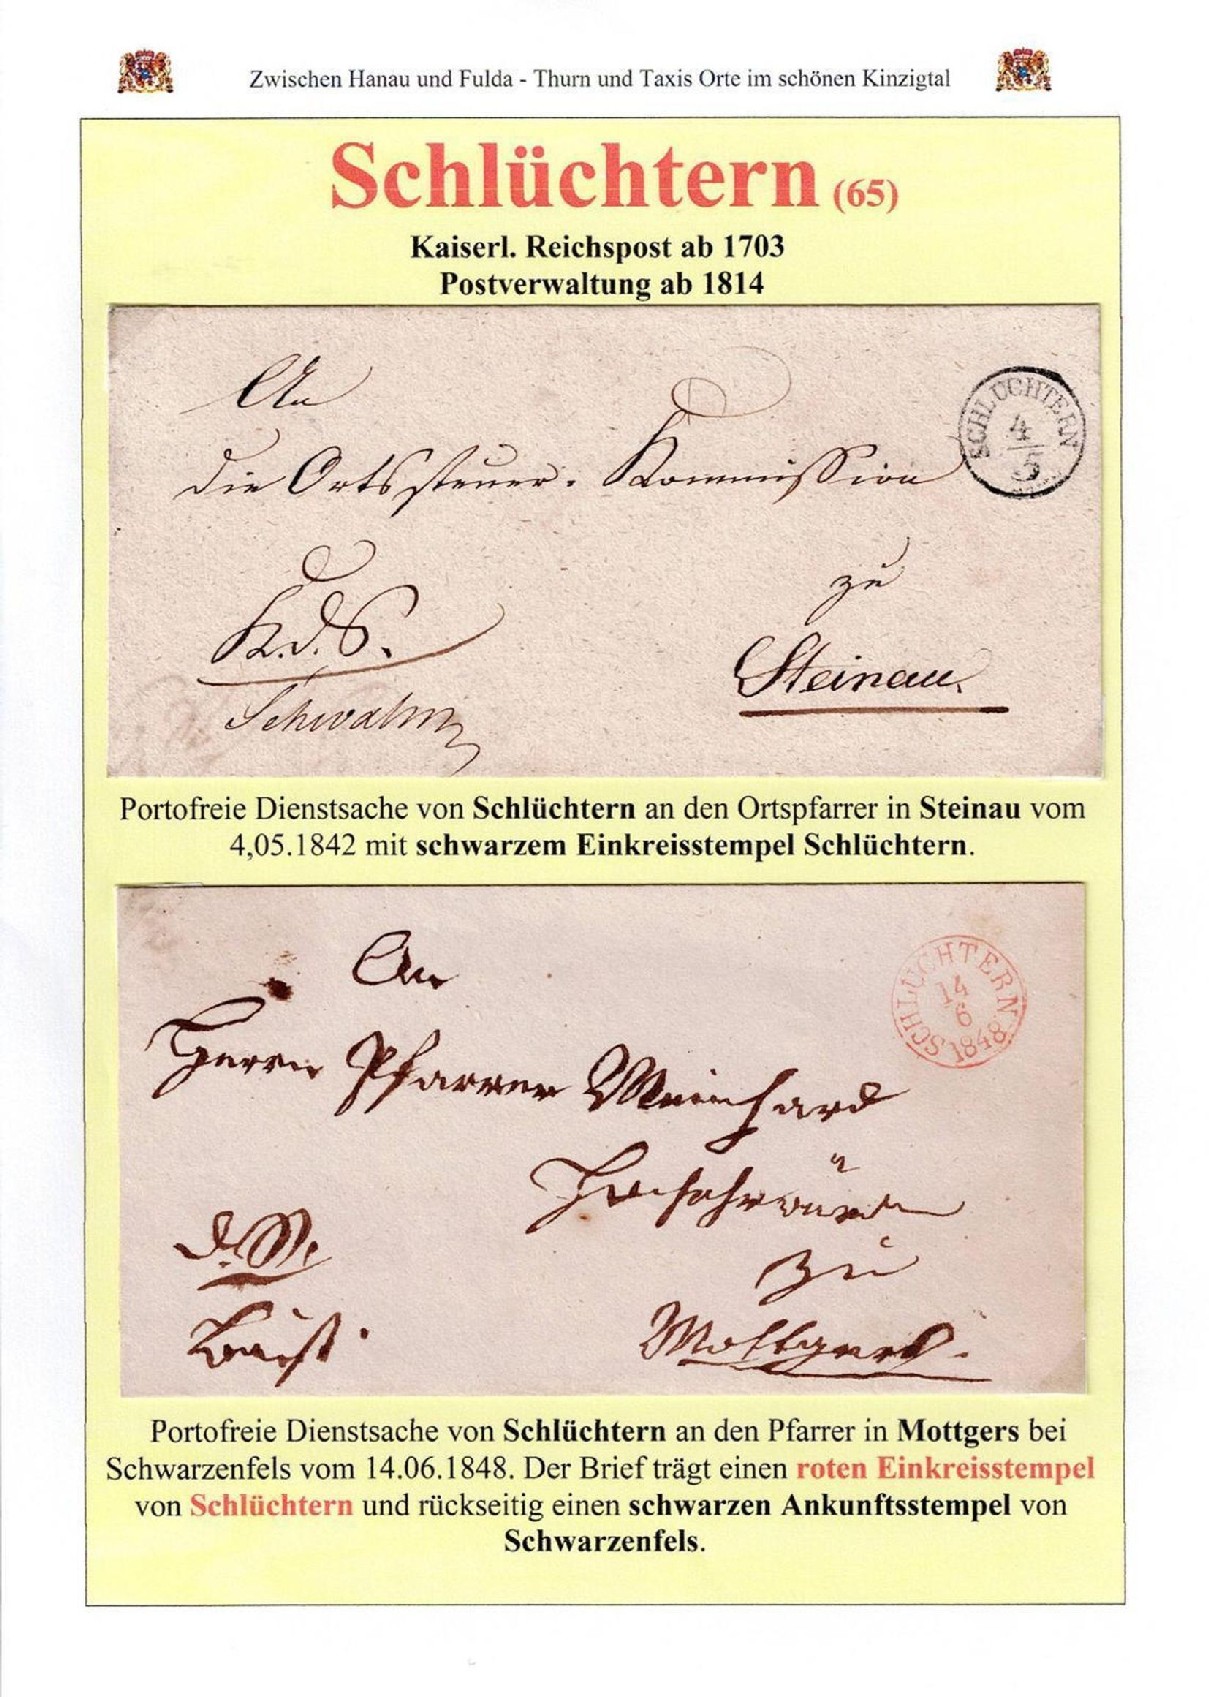 Zwischen Hanau und Fulda - Thurn und Taxis Orte im schönen Kinzigtal
Schlüchtern (65)
Kaiserl. Reichspost ab 1703
Postverwaltung ab 1814
An
die Ortssteuer-Kommission
SCHLÜCHTERN
4
5
zu
K.d.S.
Steinau.
Schwalm
Portofreie Dienstsache von Schlüchtern an den Ortspfarrer in Steinau vom
4,05.1842 mit schwarzem Einkreisstempel Schlüchtern.
An
SCHLÜCHTERN
14
6
1848
Herrn Pfarrer Meinhard
Hochehrwürden
zu
Mottgers.
Portofreie Dienstsache von Schlüchtern an den Pfarrer in Mottgers bei
Schwarzenfels vom 14.06.1848. Der Brief trägt einen roten Einkreisstempel
von Schlüchtern und rückseitig einen schwarzen Ankunftsstempel von
Schwarzenfels.